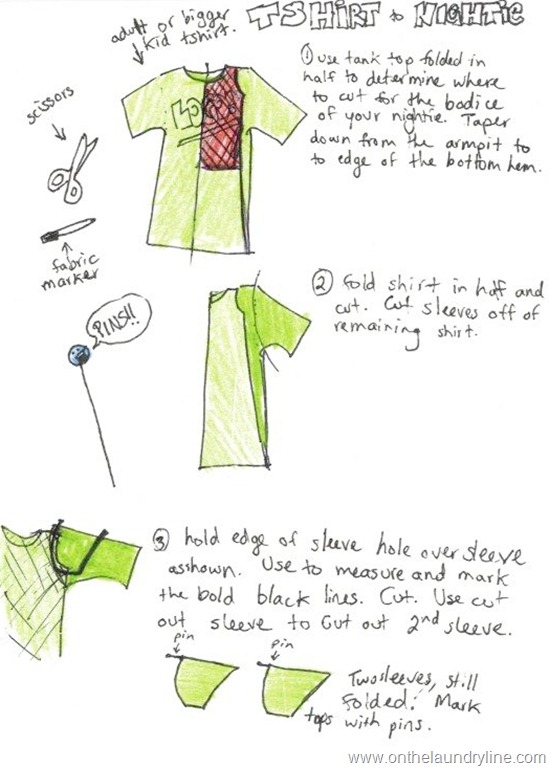 TSHIRT to NIGHTIE
adult or bigger
kid tshirt.
scissors
fabric
marker
① use tank top folded in
half to determine where
to cut for the bodice
of your nightie. Taper
down from the armpit to
to edge of the bottom hem.
② Fold shirt in half and
cut. Cut sleeves off of
remaining shirt.
PINS!!
③ hold edge of sleeve hole over sleeve
as shown. Use to measure and mark
the bold black lines. Cut. Use cut
out sleeve to cut out 2nd sleeve.
pin
pin
Two sleeves, still
folded. Mark
tops with pins.
www.onthelaundryline.com